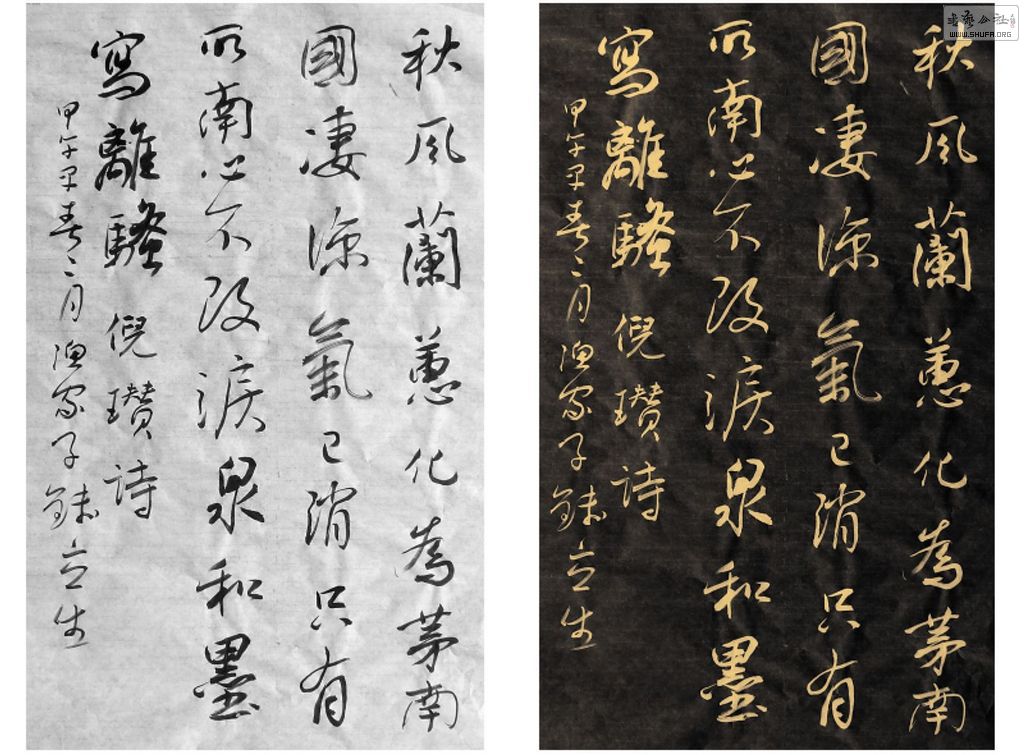 秋風蘭蕙化為茅南
國凄涼氣已消只有
所南心不改淚泉和墨
寫離騷 倪瓚詩
甲午春二月漁家子立生
秋風蘭蕙化為茅南
國凄涼氣已消只有
所南心不改淚泉和墨
寫離騷 倪瓚詩
甲午春二月漁家子立生
書藝公社
WWW.SHUFA.ORG